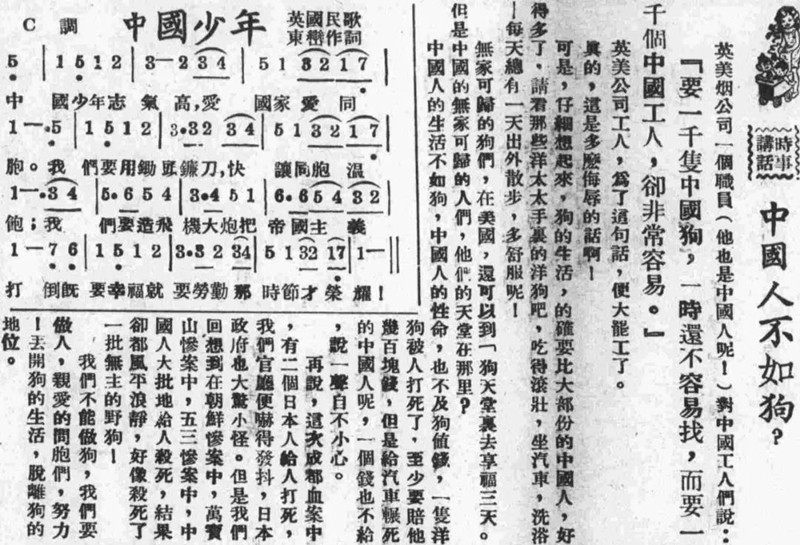 時事
講話
中國人不如狗?
英美烟公司一個職員(他也是中國人呢!)對中國工人們說:
『要一千隻中國狗,一時還不容易找,而要一
千個中國工人,卻非常容易。』
英美公司工人,爲了這句話,便大罷工了。
眞的,這是多麽侮辱的話啊!
可是,仔細想起來,狗的生活,的確要比大部份的中國人,好
得多了,請看那些洋太太手裏的洋狗吧,吃得滾壯,坐汽車,洗浴
!每天總有一天出外散步,多舒服呢!
無家可歸的狗們,在美國,還可以到「狗天堂裏去享福三天。
但是中國的無家可歸的人們,他們的天堂在那里?
中國人的生活不如狗,中國人的性命,也不及狗值錢,一隻洋
狗被人打死了,至少要賠他
幾百塊錢,但是給汽車輾死
的中國人呢,一個錢也不給
,說一聲自不小心。
再說,這次成都血案中
,有二個日本人給人打死,
我們官廳便嚇得發抖,日本
政府也大驚小怪。但是我們
回想到在朝鮮慘案中,萬寶
山慘案中,五三慘案中,中
國人大批地給人殺死,結果
卻都風平浪靜,好像殺死了
一批無主的野狗!
我們不能做狗,我們要
做人,親愛的同胞們,努力
!去開狗的生活,脫離狗的
地位。
C 調 中國少年 英國民歌
東巒作詞
5 | 1 5 1 2 | 3 — 2 3 4 | 5 1 3 2 1 7 |
中 國少年志 氣高,愛 國家愛同
1 — · 5 | 1 5 1 2 | 3 · 3 2 3 4 | 5 1 3 2 1 7 |
胞。我 們要用鋤頭鐮刀,快 讓同胞溫
1 — · 3 4 | 5 · 6 5 4 | 3 · 4 5 1 | 6 · 6 5 4 3 2 |
飽;我 們要造飛機大炮把 帝國主義
1 — 7 6 | 1 5 1 2 | 3 · 3 2 3 4 | 5 1 3 2 1 7 | 1 — ||
打 倒旣要幸福就要勞勤那時節才榮耀!